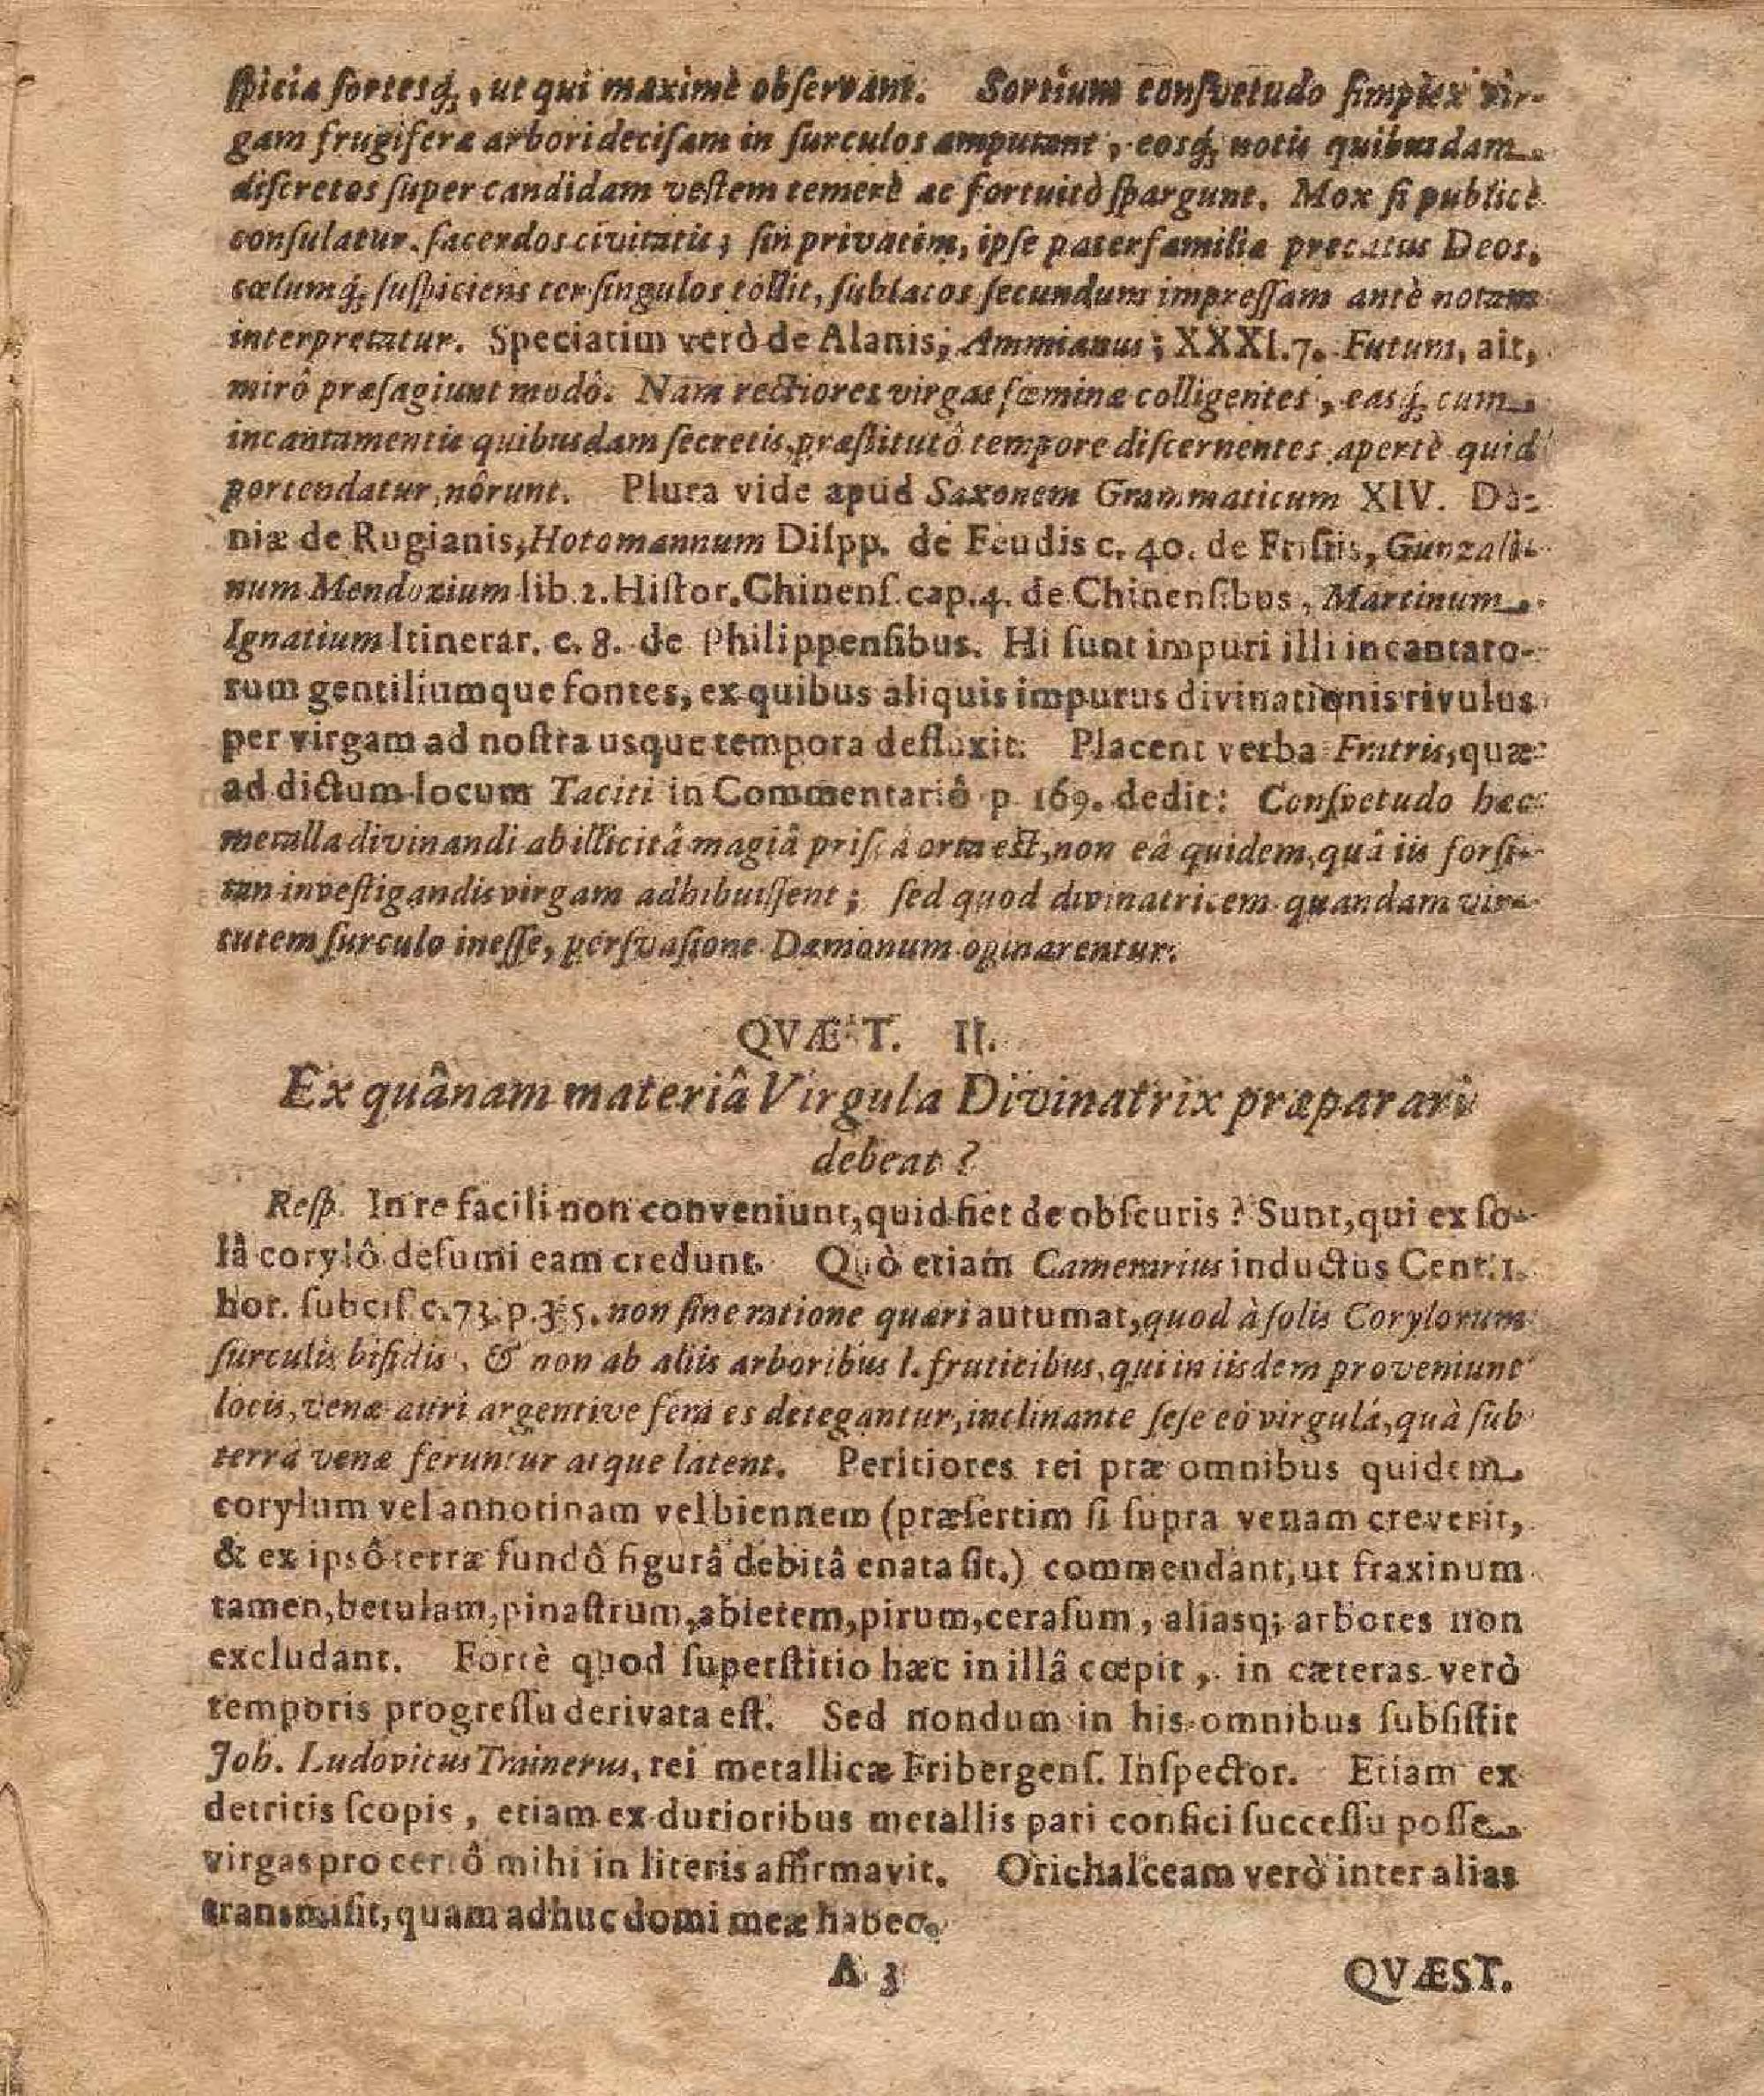 ſpicia ſortesq́;, ut qui maximè obſervant. Sortium conſvetudo ſimplex vir-
gam frugiferæ arbori deciſam in ſurculos amputant, eosq́; notis quibusdam
diſcretos ſuper candidam veſtem temerè ac fortuitò ſpargunt. Mox ſi publicè
conſulatur, ſacerdos civitatis; ſin privatim, ipſe paterfamiliæ precatus Deos,
cœlumq́; ſuſpiciens ter ſingulos tollit, ſublatos ſecundum impreſſam antè notam
interpretatur. Speciatim verò de Alanis; Ammianus; XXXI.7. Futura, ait,
mirô præſagiunt modô. Nam rectiores virgas fœminæ colligentes, easq́; cum
incantamentis quibusdam ſecretis, præſtitutô tempore diſcernentes apertè quid
portendatur, nôrunt. Plura vide apud Saxonem Grammaticum XIV. Da-
niæ de Rugianis, Hotomannum Diſpp. de Feudis c. 40. de Friſiis, Gunzali-
num Mendozium lib. 2. Hiſtor. Chinenſ. cap. 4. de Chinenſibus, Martinum
Ignatium Itinerar. c. 8. de Philippenſibus. Hi ſunt impuri illi incantato-
rum gentiliumque fontes, ex quibus aliquis impurus divinationis rivulus
per virgam ad noſtra usque tempora defluxit. Placent verba Fratris, quæ
ad dictum locum Taciti in Commentariô p. 169. dedit: Conſvetudo hæc
metalla divinandi ab illicitâ magiâ priſcâ orta eſt, non eâ quidem, quâ iis forſi-
tan inveſtigandis virgam adhibuiſſent; ſed quod divinatricem quandam vir-
tutem ſurculo ineſſe, perſvaſione Dæmonum opinarentur.
QVÆST. II.
Ex quânam materiâ Virgula Divinatrix præparari
debeat?
Reſp. In re facili non conveniunt, quid fiet de obſcuris? Sunt, qui ex ſo-
lâ corylô deſumi eam credunt. Quò etiam Camerarius inductus Cent. 1.
hor. ſubciſ. c. 73. p. non ſine ratione quæri autumat, quod à ſolis Corylorum
ſurculis bifidis, & non ab aliis arboribus l. fruticibus, qui in iisdem proveniunt
locis, venæ auri argentive feraces detegantur, inclinante ſeſe eò virgulâ, quà ſub
terrâ venæ feruntur atque latent. Peritiores rei præ omnibus quidem
corylum vel annotinam vel biennem (præſertim ſi ſupra venam creverit,
& ex ipsô terræ fundô figurâ debitâ enata ſit.) commendant, ut fraxinum
tamen, betulam, pinaſtrum, abietem, pirum, ceraſum, aliasq; arbores non
excludant. Fortè quod ſuperſtitio hæc in illâ cœpit, in cæteras verò
temporis progreſſu derivata eſt. Sed nondum in his omnibus ſubſiſtit
Joh. Ludovicus Trainerus, rei metallicæ Fribergenſ. Inſpector. Etiam ex
detritis ſcopis, etiam ex durioribus metallis pari confici ſucceſſu poſſe
virgas pro certô mihi in literis affirmavit. Orichalceam verò inter alias
transmiſit, quam adhuc domi meæ habeo.
A 3 QVÆST.